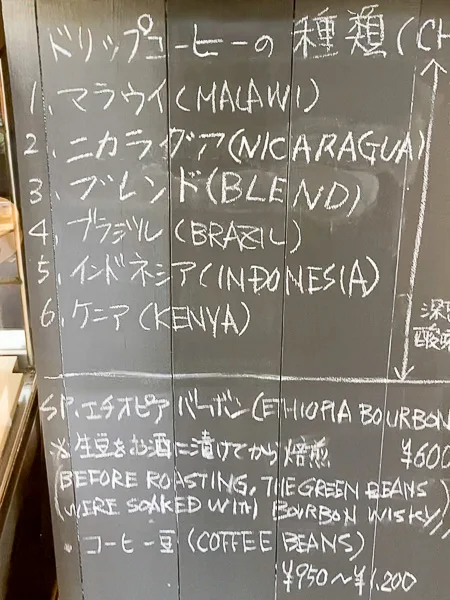 ドリップコーヒーの種類(CH
1. マラウイ(MALAWI)
2. ニカラグア(NICARAGUA)
3. ブレンド(BLEND)
4. ブラジル(BRAZIL)
5. インドネシア(INDONESIA)
6. ケニア(KENYA)
深
酸
SP. エチオピア バーボン(ETHIOPIA BOURBON
※生豆をお酒に漬けてから焙煎 ¥600
(BEFORE ROASTING, THE GREEN BEANS)
(WERE SOAKED WITH BOURBON WISKY))
コーヒー豆(COFFEE BEANS)
¥950〜¥1,200